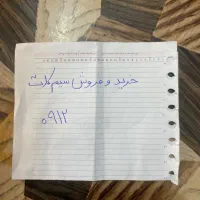 خرید و فروش سیم کارت
۰۹۱۲